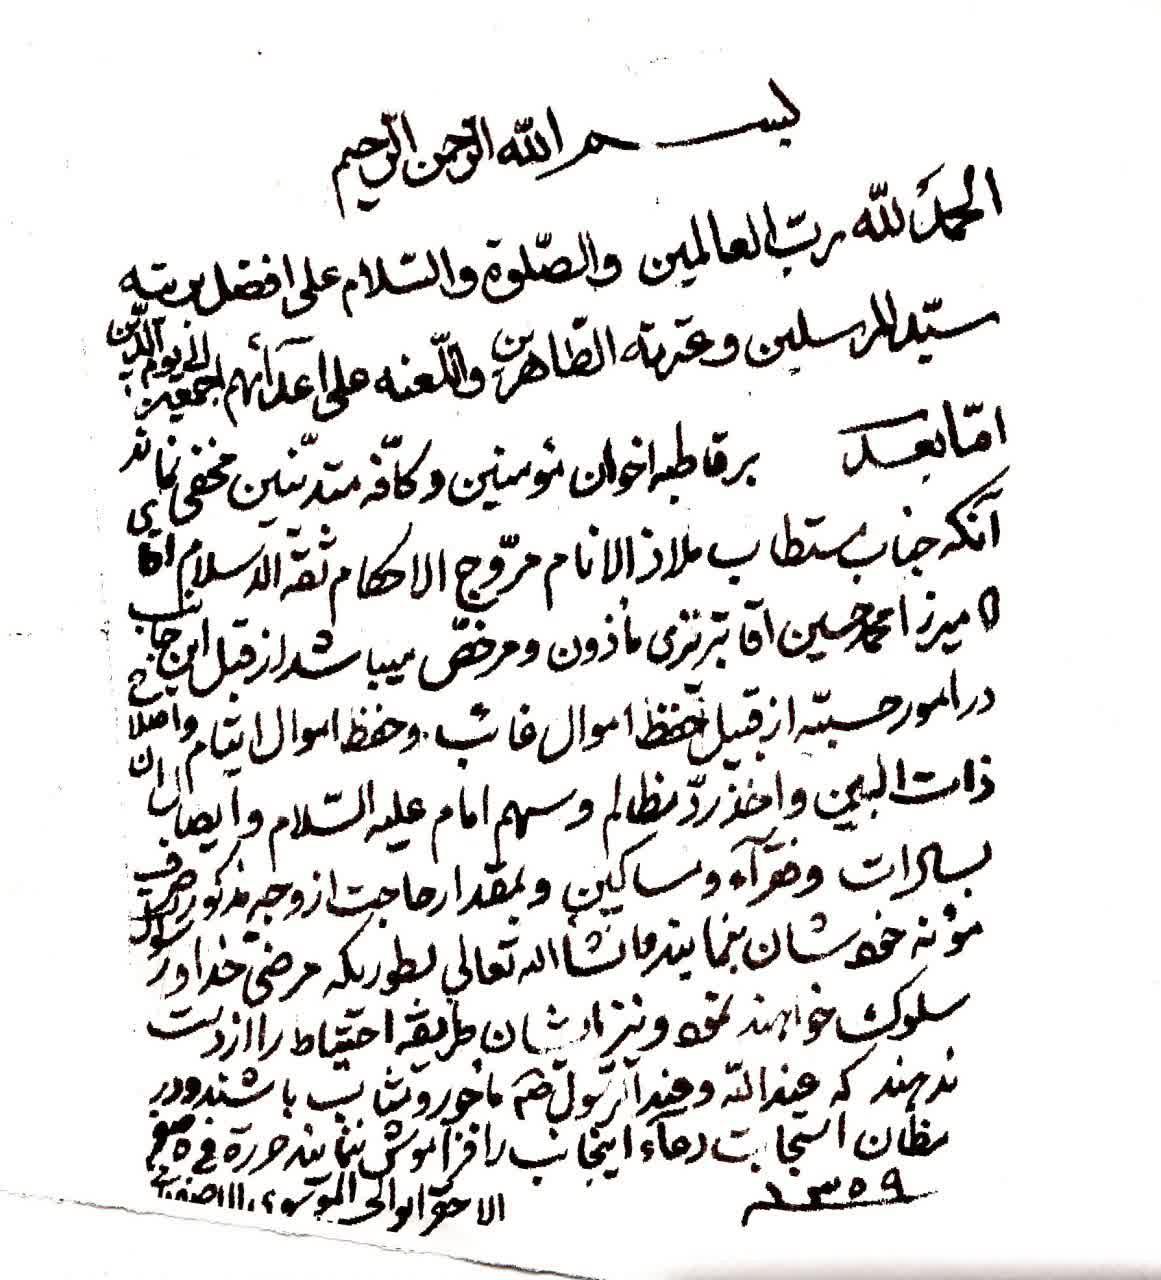 بسم الله الرّحمن الرّحیم
الحمدُ للّه ربّ العالمین والصّلوة والسّلام علی افضل بریته
سیّد المرسلین وعترته الطّاهرین واللّعنه علی اعدائهم اجمعین الی یوم الدّین
امّا بعد برقاطبه اخوان مؤمنین وکافّه متدیّنین مخفی نماند
آنکه جناب مستطاب ملاذ الانام مروّج الاحکام ثقة الاسلام اقای
میرزا محمد حسین اقا مأذون ومرخصّ میباشد از قبل این جانب
در امور حسبیّه از قبیل حفظ اموال غائب وحفظ اموال ایتام واصلاح
ذات البین واخذ ردّ مظالم وسهم امام علیه السّلام وایصال ان
بسادات وفقرآء ومساکین وبمقدار حاجت از وجه مذکور صرف
مؤنه خودشان بنمایند وانشأ الله تعالی بطوریکه مرضیّ خدا ورسول
سلوک خواهند نمود ونیز ایشان طریقه احتیاط را از دست
ندهند که عند اللّه وعند الرّسول مأجور ومثاب باشند ودر
مظان استجابت دعآء اینجانب را فراموش ننمایند حرره فی صفر
۱۳۵۹
الاحقر الموسوی